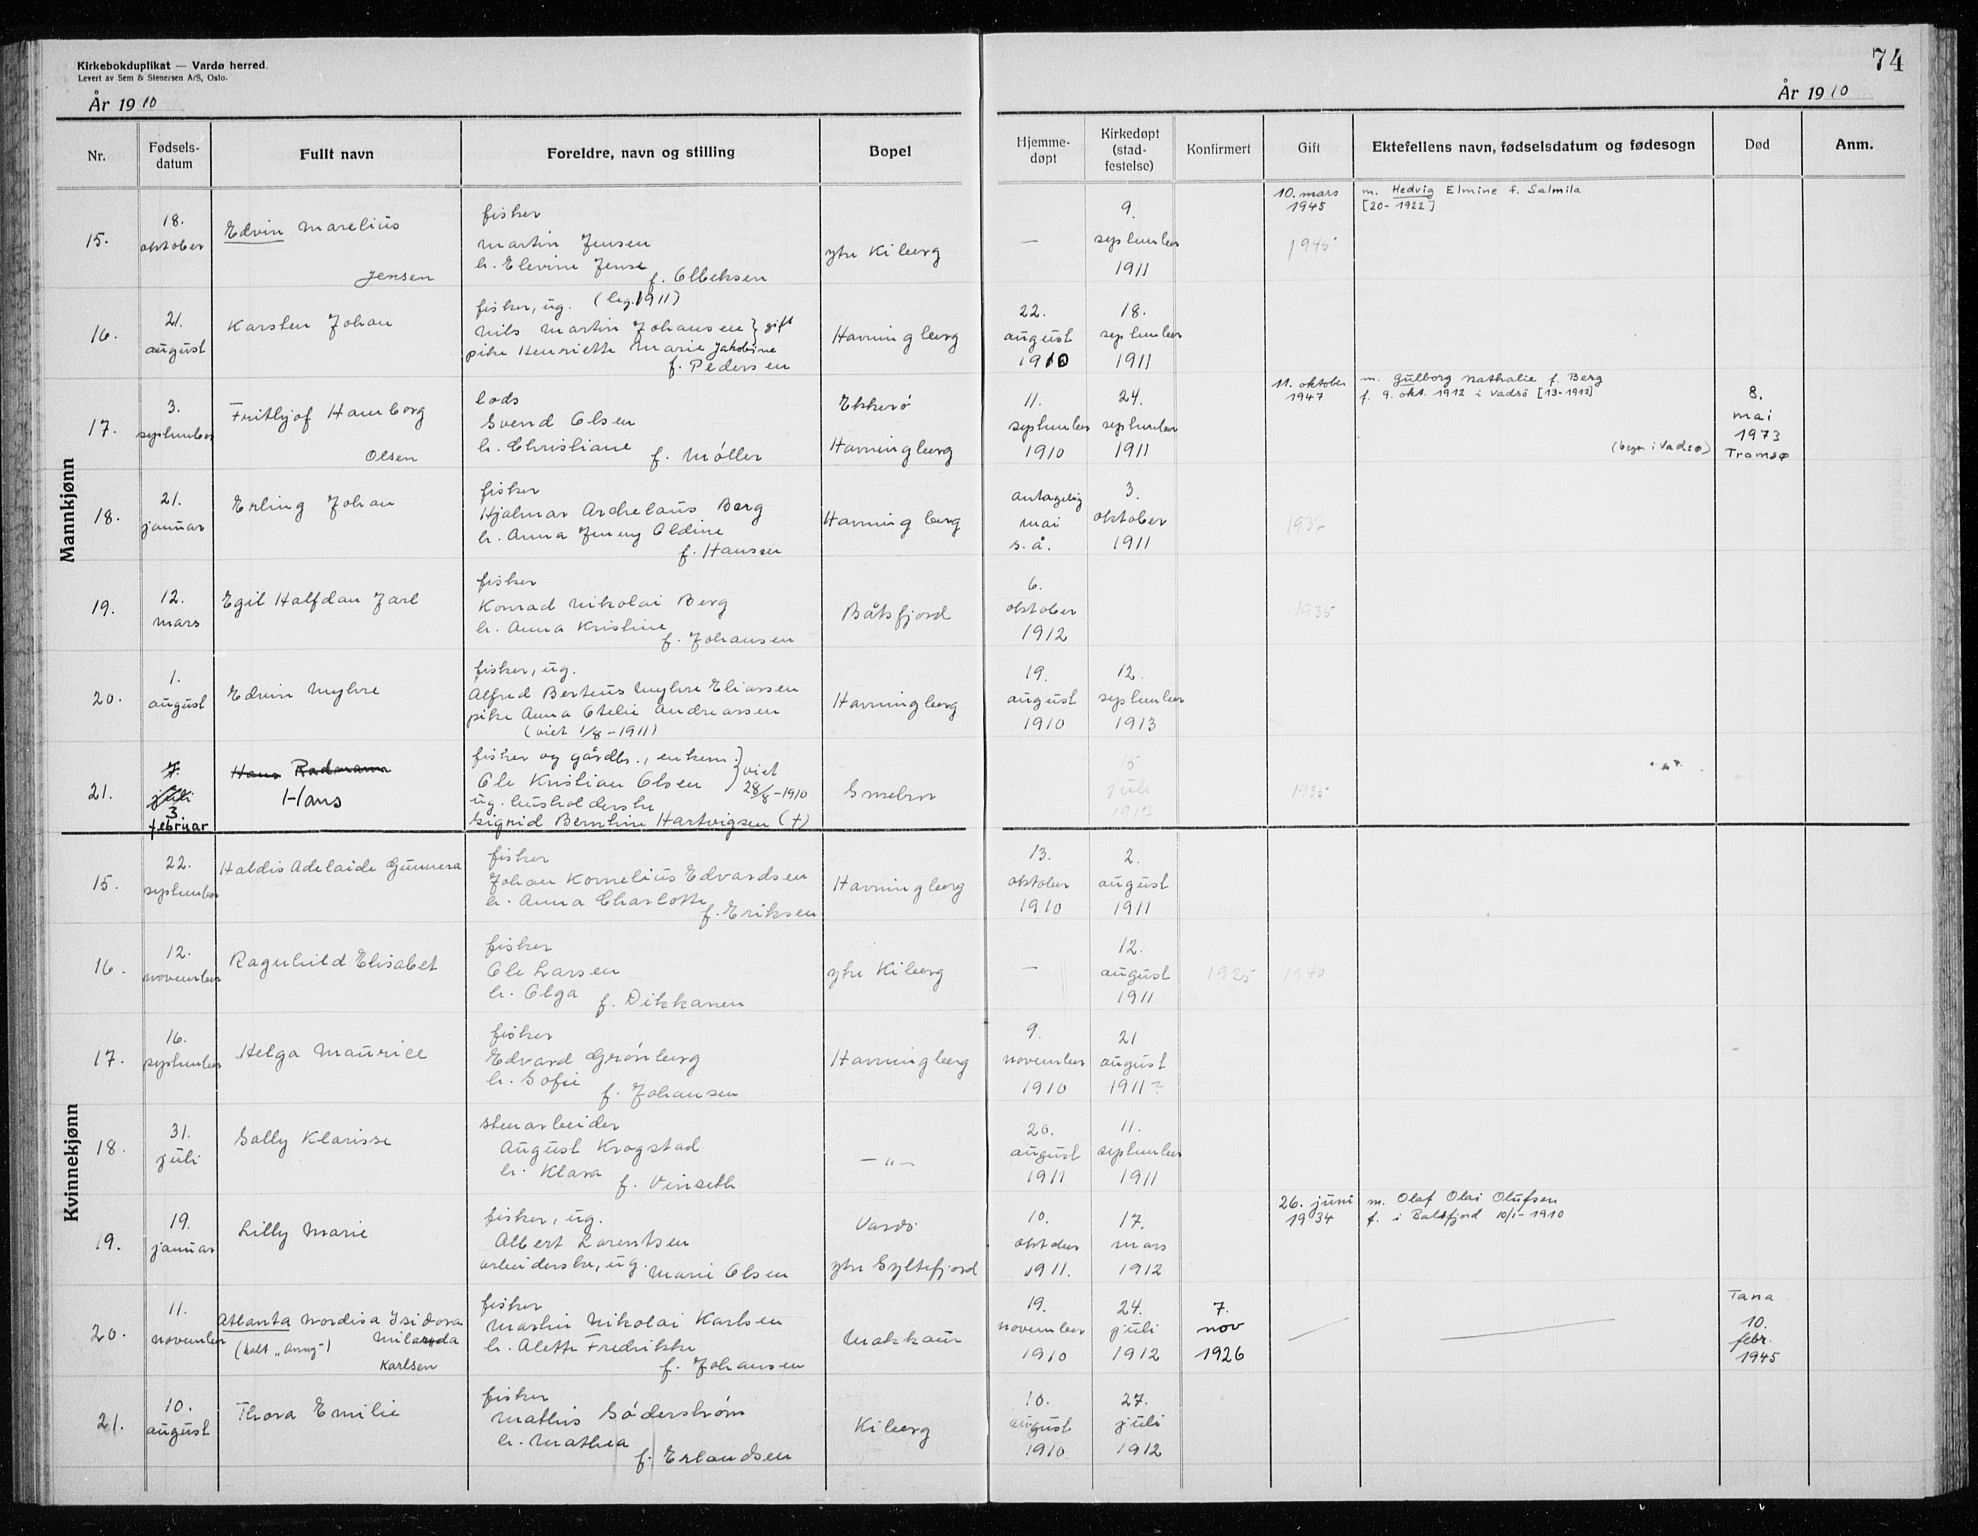 74
Kirkebokduplikat — Vardø herred.
Levert av Sem & Stenersen A/S, Oslo.
År 1910
År 1910
Nr. Fødsels-datum Fullt navn Foreldre, navn og stilling Bopel Hjemme-døpt Kirkedøpt (stad-festelse) Konfirmert Gift Ektefellens navn, fødselsdatum og fødesogn Død Anm.
Mannkjønn
15.
18.
oktober
Edvin Marelius
Jensen
fisker
Martin Jensen
h. Elevine Jense
f. Olbeksen
ytre Kiberg
—
9.
september
1911
10. mars
1945
1945
m. Hedvig Elmine f. Salmila
[20-1922]
16.
21.
august
Karsten Johan
fisker, ug. (leg. 1911)
Nils Martin Johansen } gift
pike Henriette Marie Jakobine
f. Pedersen
Havningberg
22.
august
1910
18.
september
1911
17.
3.
september
Frithjof Hamborg
Olsen
lods
Svend Olsen
h. Christiane
f. Møller
Ekkerö
Havningberg
11.
september
1910
24.
september
1911
11. oktober
1947
m. Gulborg Nathalie f. Berg
f. 9. okt. 1912 i Vadsö [13-1912]
(begr. i Vadsø)
8.
mai
1973
Tromsø
18.
21.
januar
Erling Johan
fisker
Hjalmar Archelaus Berg
h. Anna Jenny Oldine
f. Hansen
Havningberg
antagelig
mai
s.å.
3.
oktober
1911
1932
19.
12.
mars
Egil Halfdan Jarl
fisker
Konrad Nikolai Berg
h. Anna Kristine
f. Johansen
Båtsfjord
6.
oktober
1912
1935
20.
1.
august
Edvin Myhre
fisker, ug.
Alfred Berteus Myhre Eliassen
pike Anna Otelie Andreassen
(viet 1/8-1911)
Havningberg
19.
august
1910
12.
september
1913
21.
7.
juli
3
februar
Hans Radmann
Hans
fisker og gårdbr., enkem. } viet
Ole Kristian Olsen 28/8-1910
ug. husholderske
Sigrid Berntine Hartvigsen (+)
Smelror
15
juli
1912
1935
Kvinnekjønn
15.
22.
september
Haldis Adelaide Gunnera
fisker
Johan Kornelius Edvardsen
h. Anna Charlotte
f. Eriksen
Havningberg
13.
oktober
1910
2.
august
1911
16.
12.
november
Ragnhild Elisabet
fisker
Ole Larsen
h. Olga f. Dikkanen
ytre Kiberg
—
12.
august
1911
1925
1940
17.
16.
september
Helga Maurice
fisker
Edvard Grönberg
h. Sofie
f. Johansen
Havningberg
9.
november
1910
21
august
1911?
18.
31.
juli
Sally Klarisse
stenarbeider
August Krogstad
h. Klara
f. Vinseth
— „ —
20.
august
1911
11.
september
1911
19.
19.
januar
Lilly Marie
fisker, ug.
Albert Lorentsen
arbeiderske, ug. Marie Olsen
Vardö
ytre Syltefjord
10.
oktober
1911.
17.
mars
1912
26. juni
1934
m. Olaf Olai Olufsen
f. i Balsfjord 10/1-1910
20.
11.
november
Atlanta Nordisa Isidora
(kalt „Anny") Milarda
Karlsen
fisker
Martin Nikolai Karlsen
h. Alette Fredrikke
f. Johansen
Makkaur
19.
november
1910
24.
juli
1912
7.
nov
1926
Tana
10.
febr.
1945
21.
10.
august
Thora Emilie
fisker
Mathis Söderström
h. Mathea
f. Erlandsen
Kiberg
10.
august
1910
27.
juli
1912